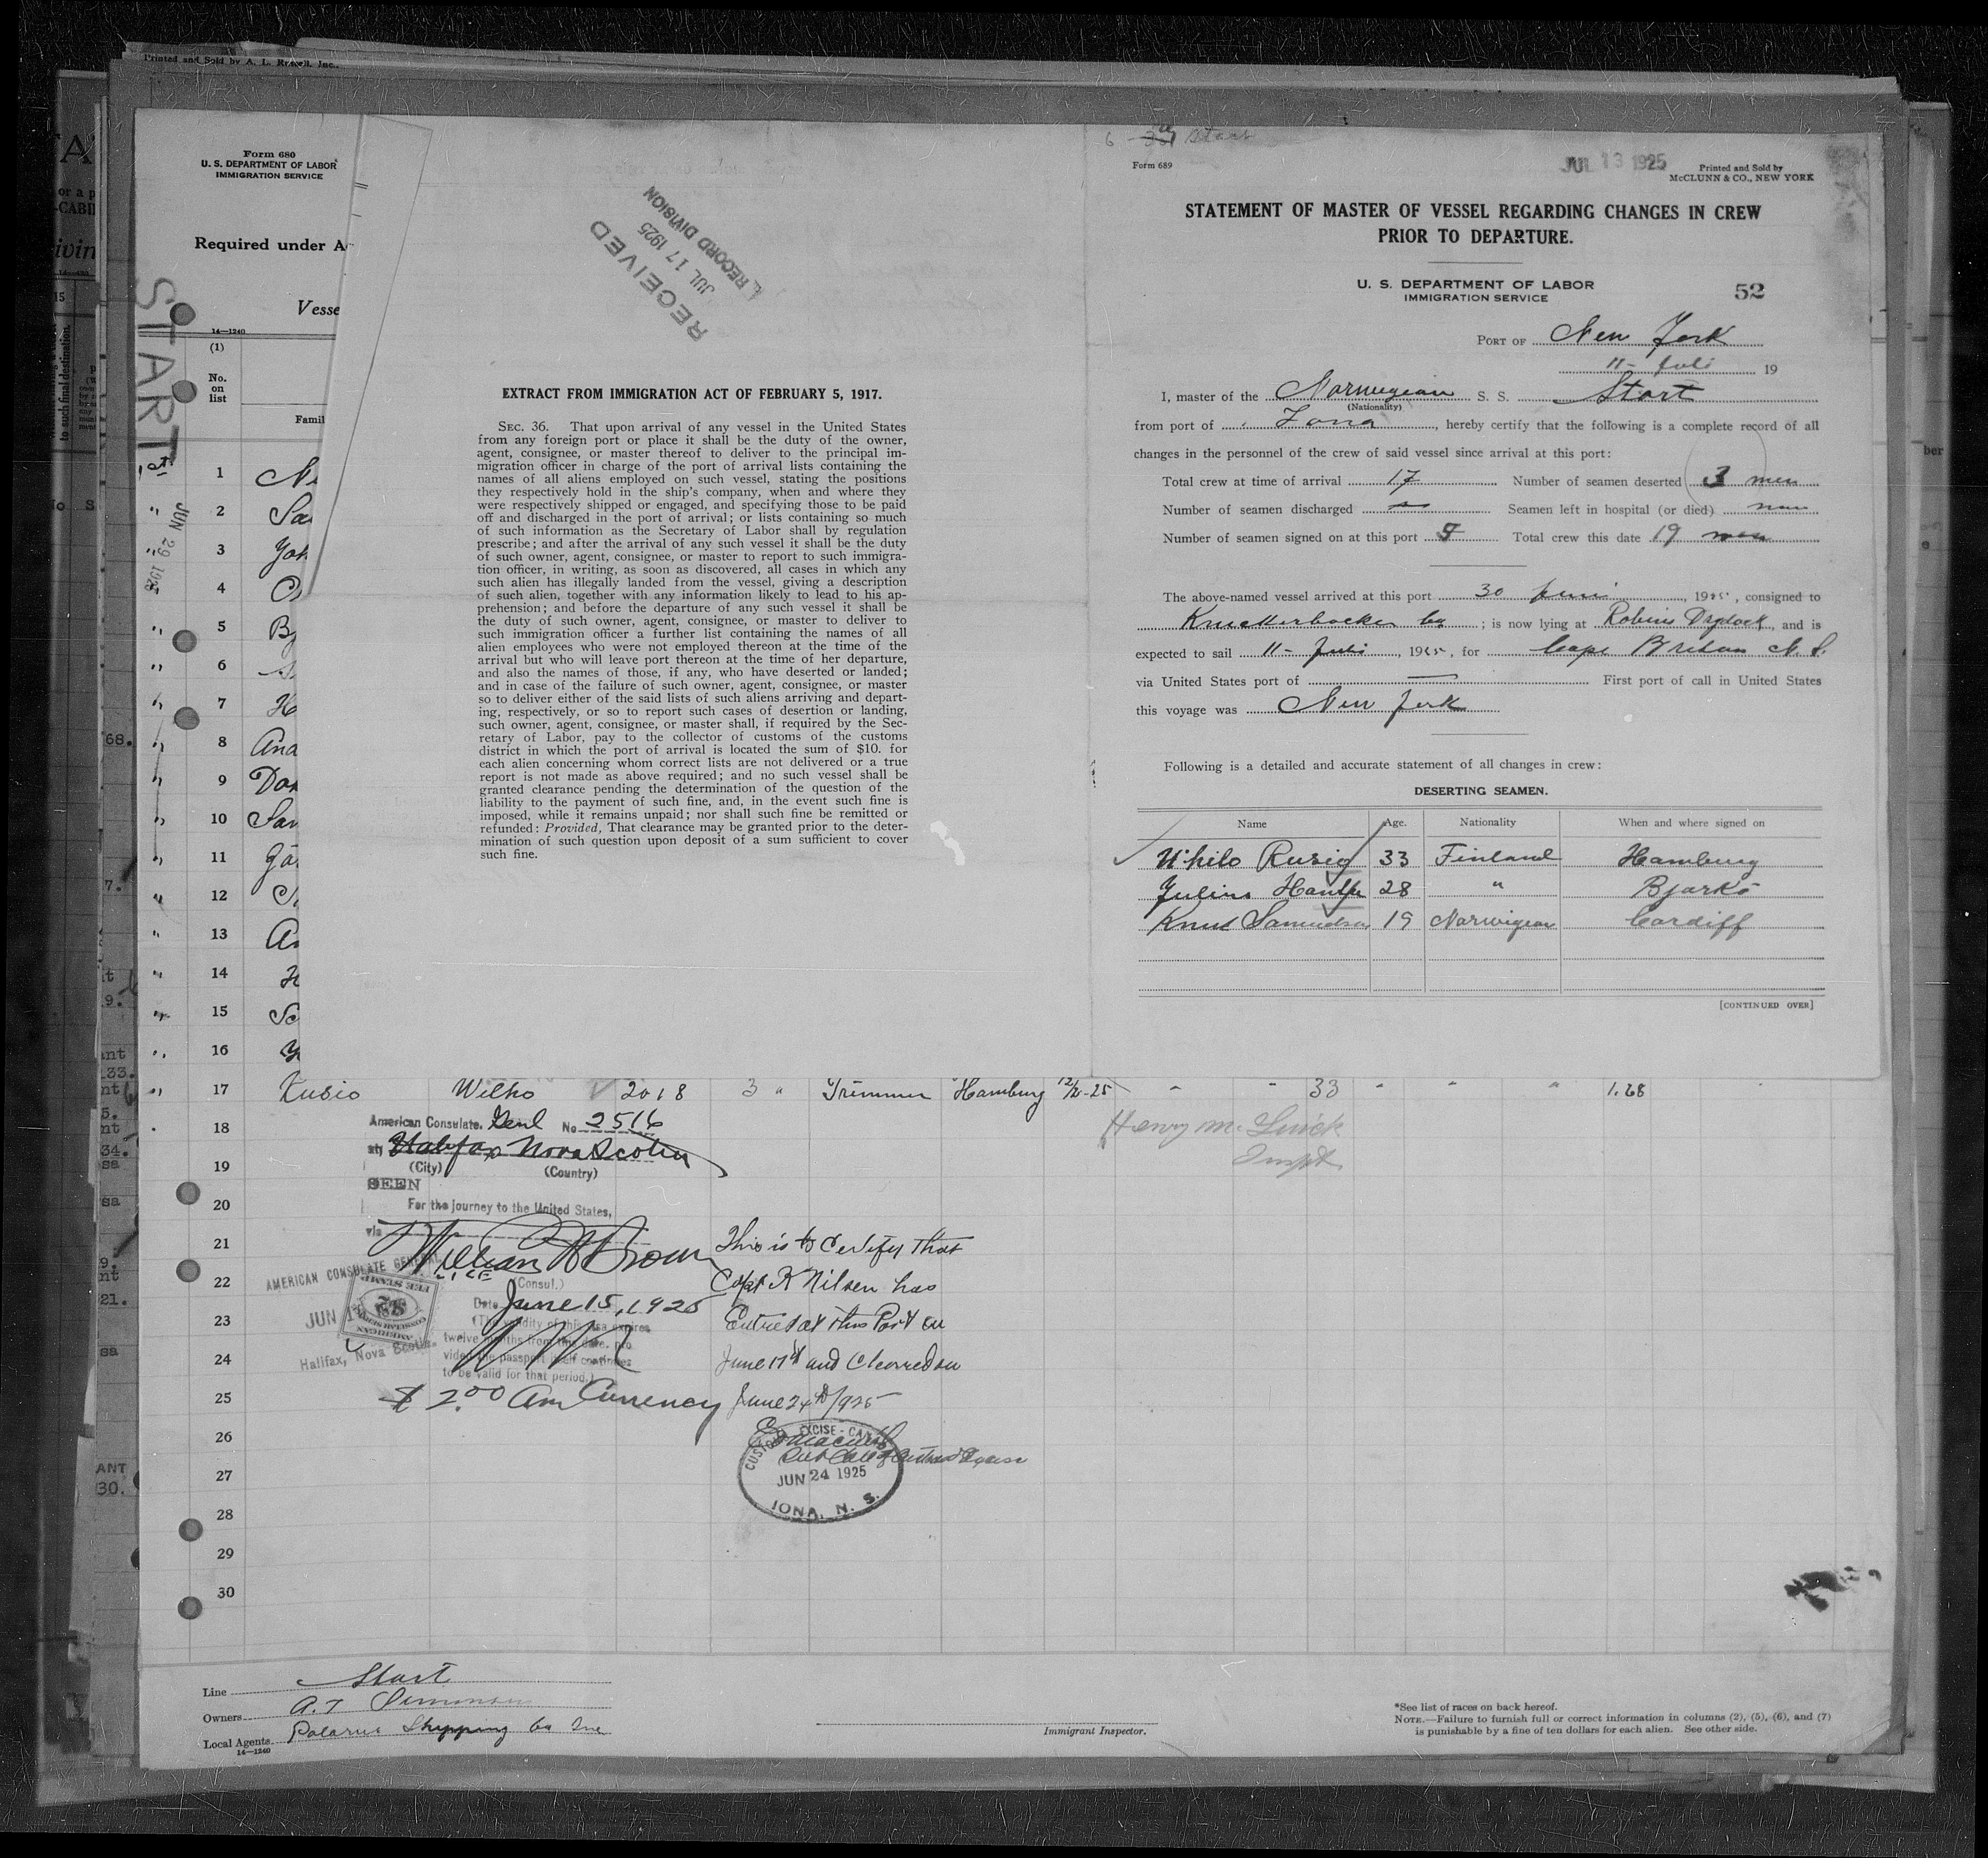 Printed and Sold by A. L. Russell, Inc.
Form 680
U. S. DEPARTMENT OF LABOR
IMMIGRATION SERVICE
Required under A
Vesse
START
14—1240
(1)
No.
on
list
Famil
JUN 29 1925
1
2
3
4
5
6
7
8
9
10
11
12
13
14
15
16
RECEIVED
JUL 17 1925
RECORD DIVISION
EXTRACT FROM IMMIGRATION ACT OF FEBRUARY 5, 1917.
SEC. 36. That upon arrival of any vessel in the United States
from any foreign port or place it shall be the duty of the owner,
agent, consignee, or master thereof to deliver to the principal im-
migration officer in charge of the port of arrival lists containing the
names of all aliens employed on such vessel, stating the positions
they respectively hold in the ship's company, when and where they
were respectively shipped or engaged, and specifying those to be paid
off and discharged in the port of arrival; or lists containing so much
of such information as the Secretary of Labor shall by regulation
prescribe; and after the arrival of any such vessel it shall be the duty
of such owner, agent, consignee, or master to report to such immigra-
tion officer, in writing, as soon as discovered, all cases in which any
such alien has illegally landed from the vessel, giving a description
of such alien, together with any information likely to lead to his ap-
prehension; and before the departure of any such vessel it shall be
the duty of such owner, agent, consignee, or master to deliver to
such immigration officer a further list containing the names of all
alien employees who were not employed thereon at the time of the
arrival but who will leave port thereon at the time of her departure,
and also the names of those, if any, who have deserted or landed;
and in case of the failure of such owner, agent, consignee, or master
so to deliver either of the said lists of such aliens arriving and depart-
ing, respectively, or so to report such cases of desertion or landing,
such owner, agent, consignee, or master shall, if required by the Sec-
retary of Labor, pay to the collector of customs of the customs
district in which the port of arrival is located the sum of $10. for
each alien concerning whom correct lists are not delivered or a true
report is not made as above required; and no such vessel shall be
granted clearance pending the determination of the question of the
liability to the payment of such fine, and, in the event such fine is
imposed, while it remains unpaid; nor shall such fine be remitted or
refunded: Provided, That clearance may be granted prior to the deter-
mination of such question upon deposit of a sum sufficient to cover
such fine.
6 Start
Form 689
JUL 13 1925
Printed and Sold by
McCLUNN & CO., NEW YORK
STATEMENT OF MASTER OF VESSEL REGARDING CHANGES IN CREW
PRIOR TO DEPARTURE.
U. S. DEPARTMENT OF LABOR
IMMIGRATION SERVICE
52
PORT OF New York
11- Juli 19
I, master of the Norwegian S. S. Start
(Nationality)
from port of Iona, hereby certify that the following is a complete record of all
changes in the personnel of the crew of said vessel since arrival at this port:
Total crew at time of arrival 17 Number of seamen deserted 3 men
Number of seamen discharged Seamen left in hospital (or died)
Number of seamen signed on at this port 5 Total crew this date 19 men
The above-named vessel arrived at this port 30 juni, 1925, consigned to
Knickerbocker; is now lying at Robins Drydock, and is
expected to sail 11- Juli, 1925, for Cape Breton N. S.
via United States port of — First port of call in United States
this voyage was New York
Following is a detailed and accurate statement of all changes in crew:
DESERTING SEAMEN.
Name Age. Nationality When and where signed on
Whilo Rusig 33 Finland Hamburg
Julius 28 " Bjarkö
Knud Samuelsen 19 Norwigean Cardiff
[CONTINUED OVER]
17 Kusio Wilho 2018 3 " Trimmer Hamburg 12/2-25 " " 33 " " " 1.68
18
19
20
21
22
23
24
25
26
27
28
29
30
American Consulate Genl No 2516
at Halifax Nova Scotia
(City) (Country)
SEEN
For the journey to the United States,
via
William W Brown
VICE (Consul.)
Date June 15, 1925
(The validity of this visa expires
twelve months from this date, pro
vided the passport itself continues
to be valid for that period.)
$ 2.00 Am Currency
AMERICAN CONSULATE GENERAL
FEE STAMP
Halifax, Nova Scotia.
Henry M.
Inspt
This is to Certify that
Capt K Nilsen has
Entred at this Port on
June 17th and Cleared on
June 24th/925
CUSTOMS EXCISE - CANADA
JUN 24 1925
IONA, N. S.
Line Start
Owners A.T Simonsen
Local Agents Polarus Shipping Co Inc
14—1240
Immigrant Inspector.
*See list of races on back hereof.
NOTE.—Failure to furnish full or correct information in columns (2), (5), (6), and (7)
is punishable by a fine of ten dollars for each alien. See other side.